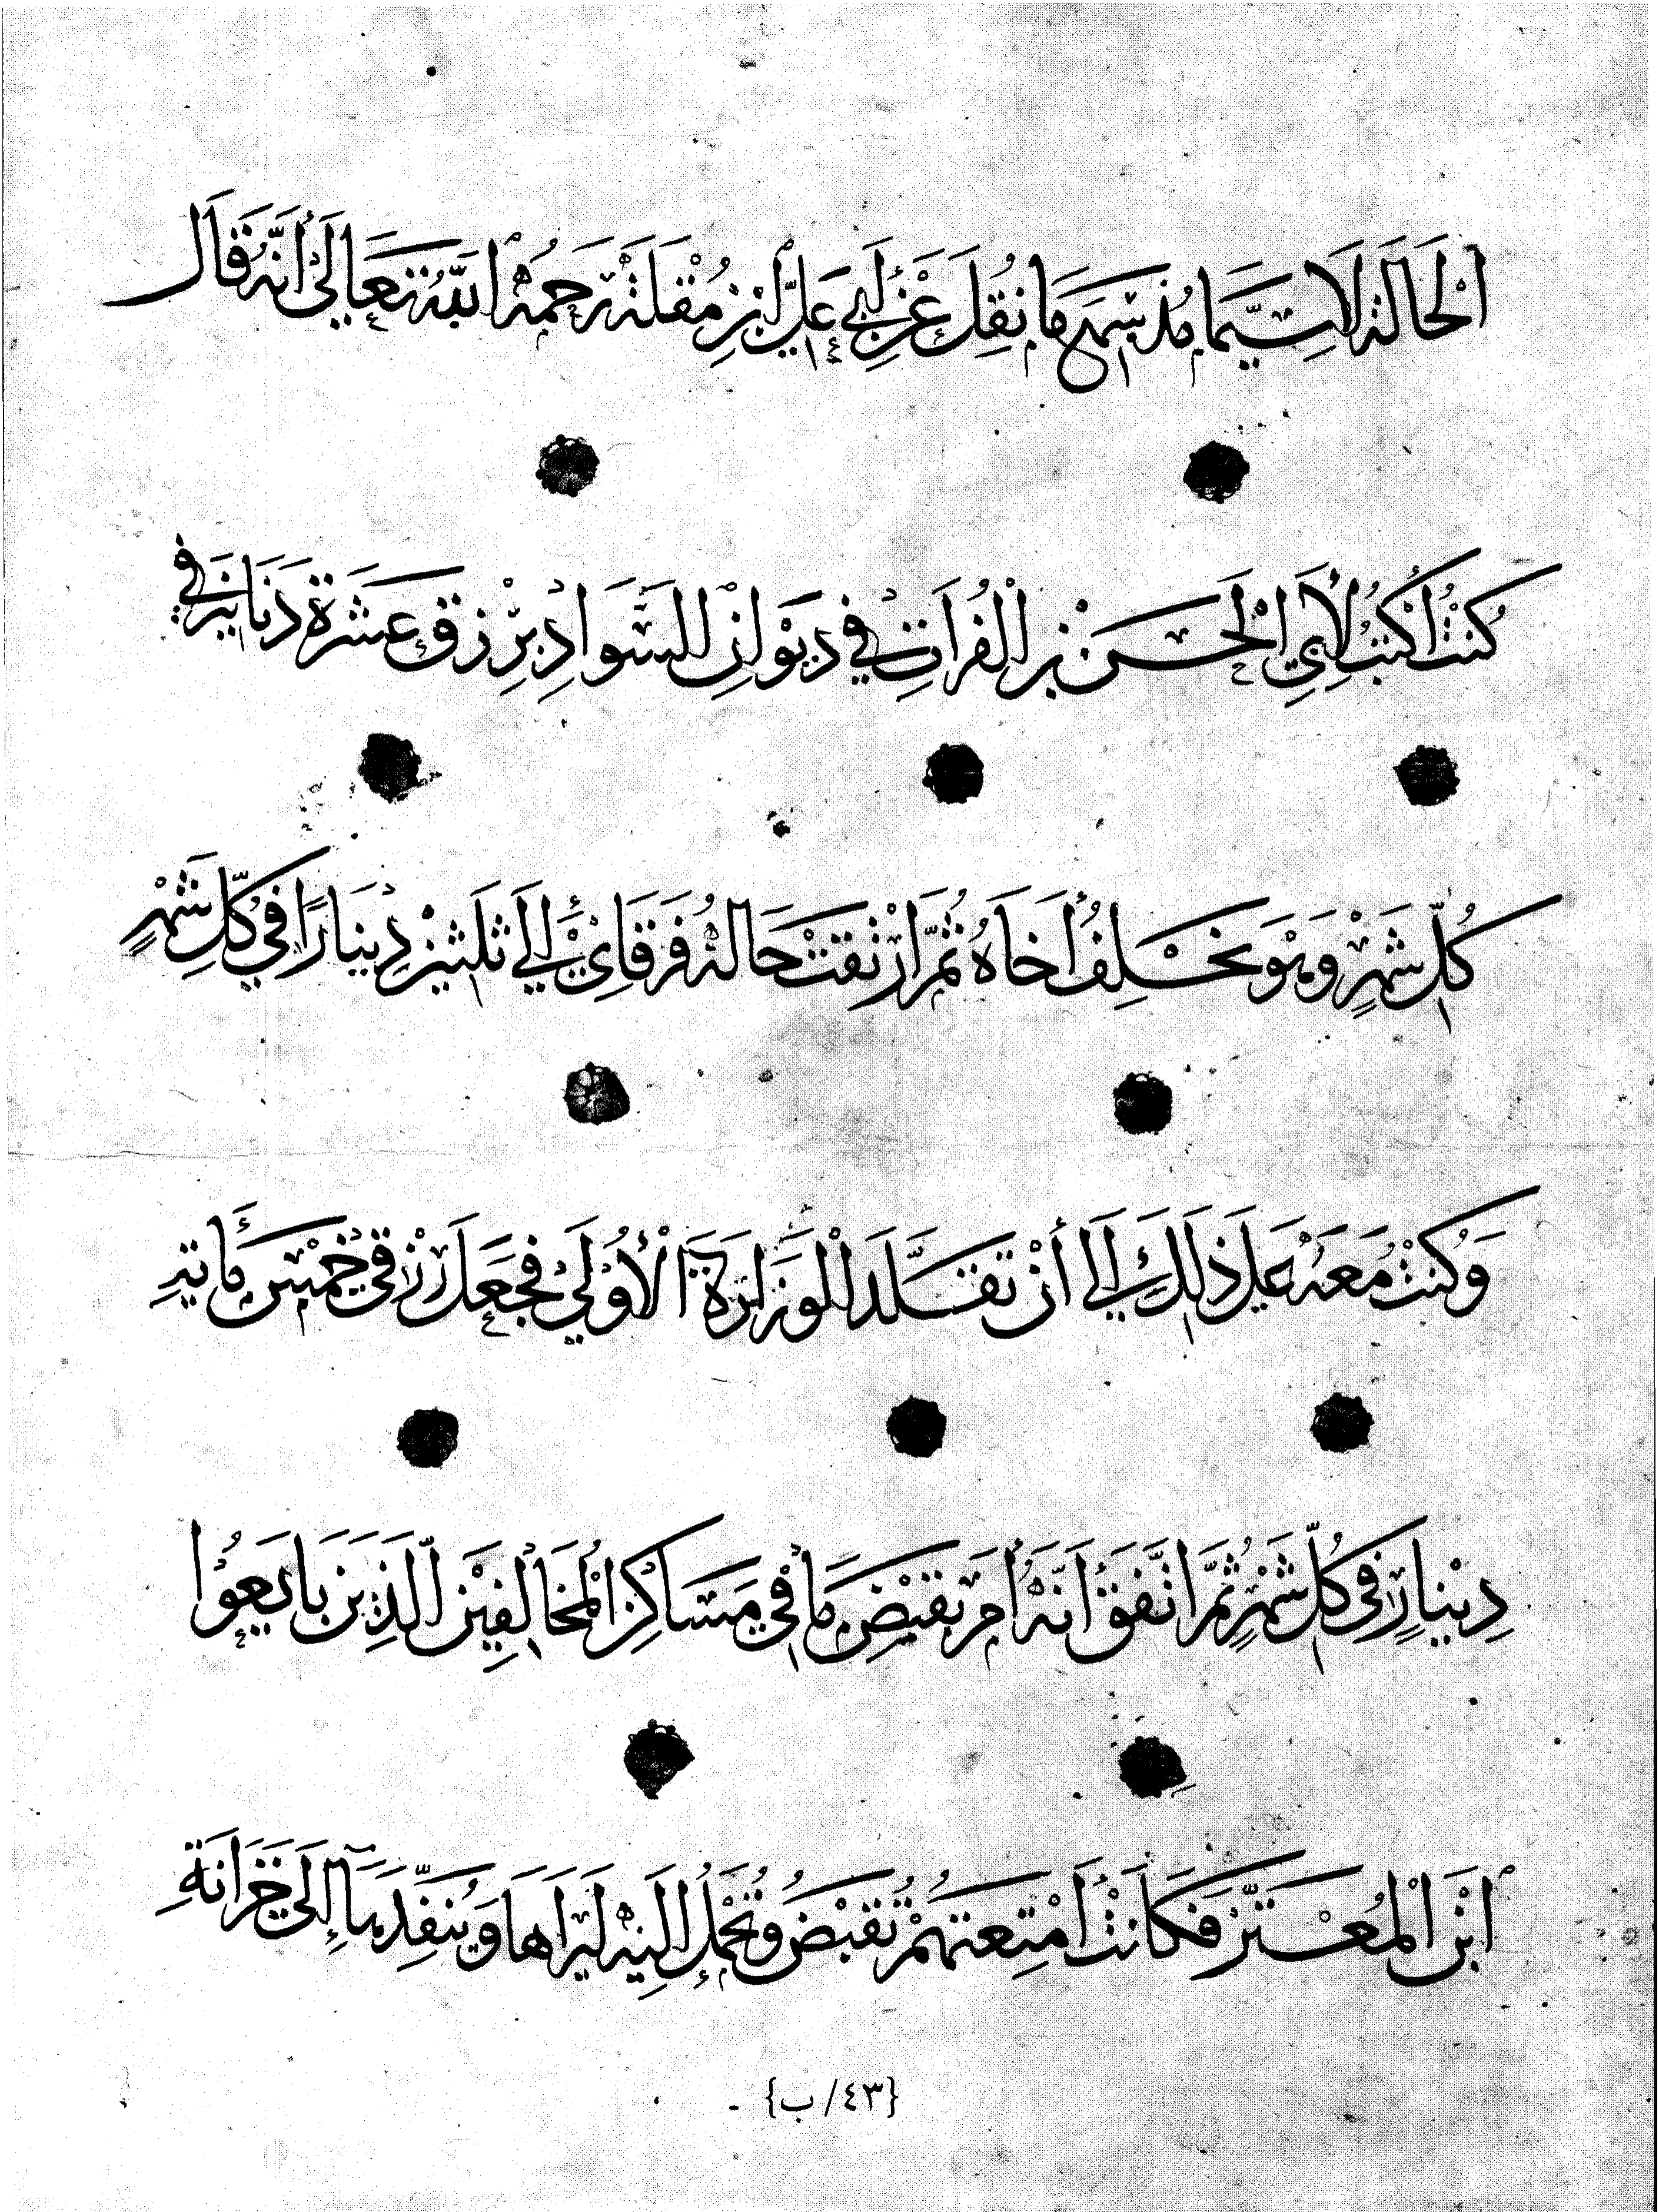 اَلْحَالَة لَاسِيَّمَا مُذ سَمِعَ مَا نُقِلَ عَنْ أَبِي عَلِيّ ابْنِ مُقْلَةَ رَحِمَهُ اللّٰهُ تَعَالَىٰ أَنَّهُ قَالَ
كُنْتُ أَكْتُبُ لِأَبِي الْحَسَنْ بن الْفُرَاتِ فِي دِيْوَانِ السَّوَادِ بِرِزْقِ عَشَرَةِ دَنَانِيْرَ فِي
كُلِّ شَهْرٍ وَهُوَ يَخْلِفُ أَخَاهُ ثُمَّ ارْتَقَتْ حَالَهُ فَرَقَّانِيْ إِلَى ثَلٰثِيْنَ دِيْنَارًا فِي كُلِّ شَهْرٍ
وَكُنْتُ مَعَهُ عَلَى ذَلِكَ إِلَى أَنْ تَقَلَّدَ الْوَزَارَةَ الْأُوْلَى فَجَعَلَ رِزْقِي خَمْسَ مَائَةِ
دِيْنَارٍ فِي كُلِّ شَهْرٍ ثُمَّ اتَّفَقَ أَنَّهُ أَمَرَ بِقَبْضِ مَا فِي مَسَاكِنِ الْمُخَالِفِيْنَ الَّذِيْنَ بَايَعُوْا
ابْنَ الْمُعْتَزّ فَكَانَتْ أَمْتِعَتُهُمْ تُقْبَضُ وَتُحْمَلُ إِلَيْهِ لِيَرَاهَا وَيُنَفِّذَهَا إِلَى خَزَانَةِ
{٤٣/ب}